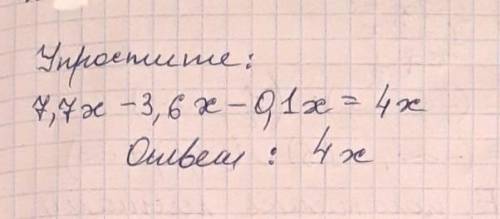 Упростите:
7,7x - 3,6x - 0,1x = 4x
Ответ: 4x